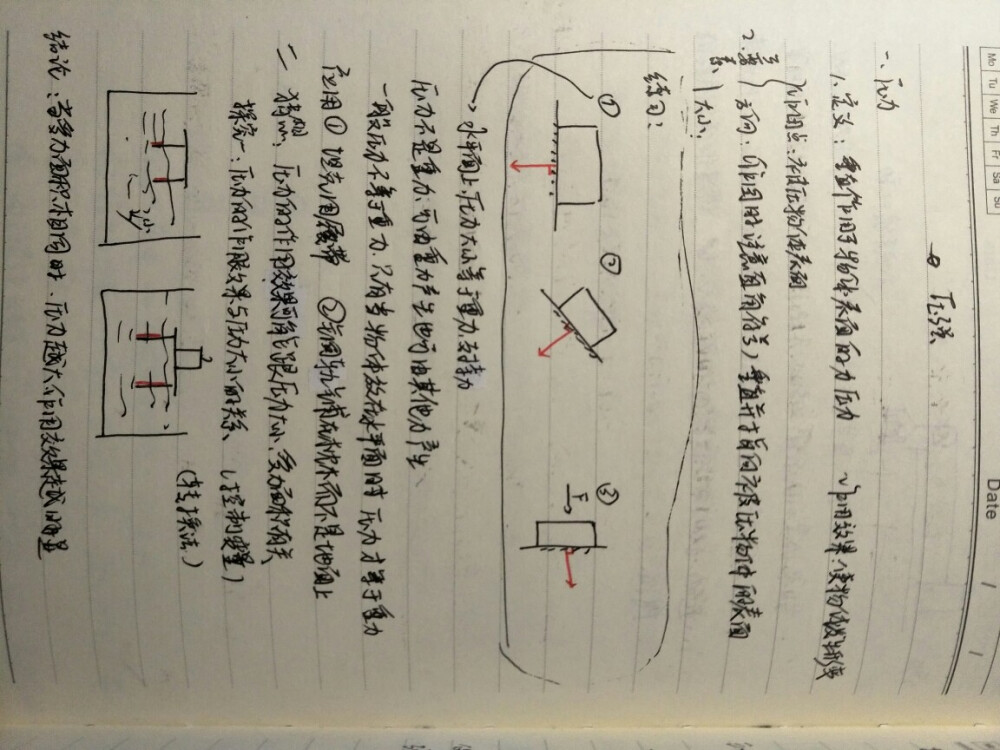 Mo Tu We Th Fr Sa Su
Date
压强
一、压力
1. 定义：垂直作用于物体表面的力 压力
作用效果：使物体发生形变
作用点：在被压物体表面
2. 要素
方向：垂直并指向被压物体的表面
大小：
练习：
① ② ③
F
水平面上，压力大小等于重力，支持力
压力不是重力，可由重力产生也可由其他力产生、
一般压力不等于重力，只有当物体放在水平面时 压力才等于重力
应用 ① 坦克用履带 ② 钢轨铺在枕木而不是地面上
二 猜想：压力的作用效果可能跟压力大小、受力面积有关
探究一：压力的作用效果与压力大小的关系、（控制变量）
（转换法）
结论：当受力面积相同时，压力越大，作用效果越明显